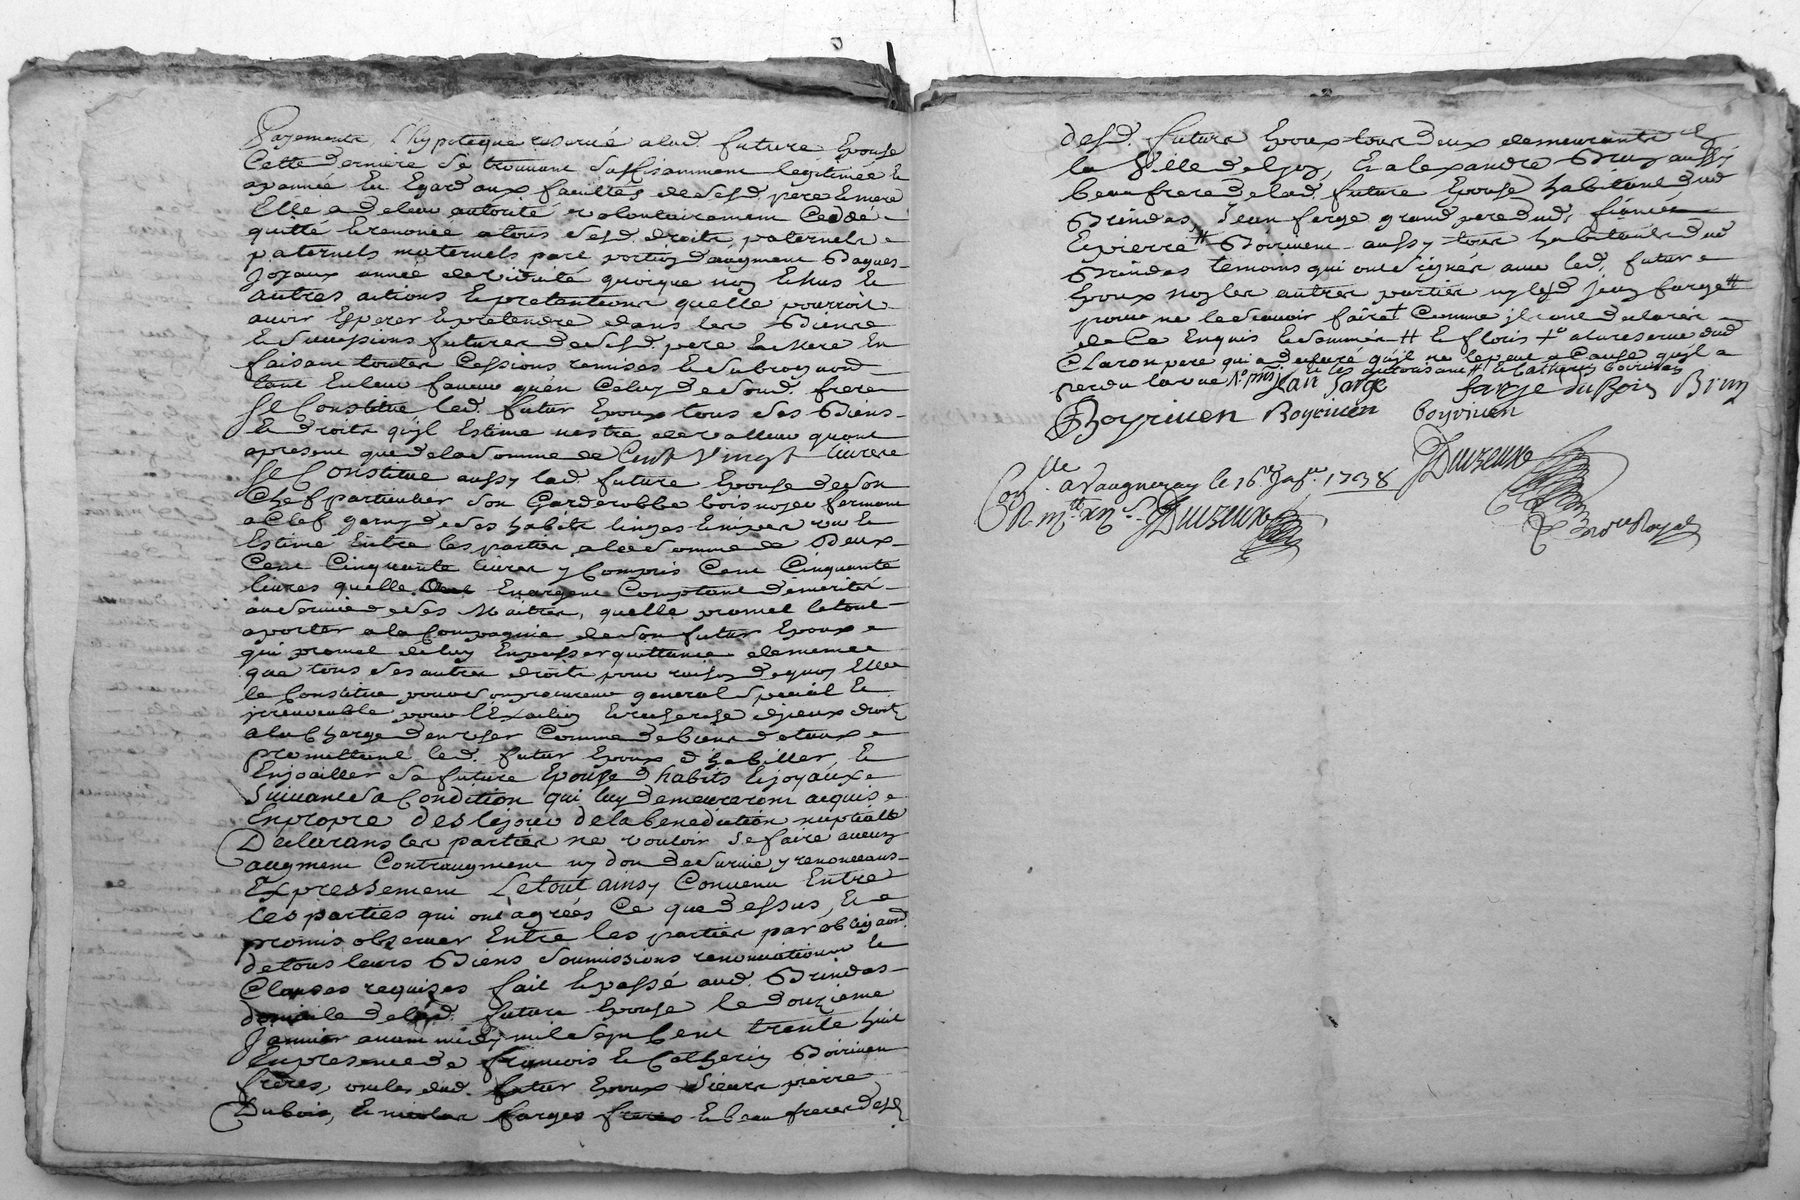 Payements, l'hypoteque reservé a lad. future Epouse
Cette derniere se trouvant suffisamment legitimée Et
apannée Eu Egard aux facultés de sesd. pere Et mere
Elle a de leur autorité volontairement Ceddé
quitté Et renoncé a tous sesd. droits paternels
paternels maternels part portion d'augment Bagues
Joyaux année de viduité quoique non Echus Et
autres actions Et pretentions quelle pourroit
avoir Esperer Et pretendre dans les Biens
Et successions futures de sesd. pere Et Mere En
faisant toutes Cessions remises Et subrogaon
tant En leur faveur qu'en Celuy de sond. frere
Se Constitue led. futur Epoux tous ses Biens
Et droits qu'jl Estime nestre de valleur quant
apresent que de la somme de Cent Vingt Livres
Se Constitue aussy lad. future Epouse de son
Chef particulier son Garderobbe bois noyer fermant
a Clef garny de ses habits linges Et nipes vu Et
Estimé Entre les parties a la somme de Deux
Cent Cinquante livres y Compris Cent Cinquante
livres quelle En argent Comptant d'emerité
au service de ses Maitres, quelle promet le tout
aporter a la Compagnie de son futur Epoux
qui promet de luy En passer quittance de meme
que tous ses autres droits pour raison de quoy Elle
le Constitue pour son procureur general special Et
jrrevocable pour l'Exaction Et recherche d'jceux droits
a la Charge d'en user Comme de biens dotaux
promettant led. futur Epoux d'habiller Et
Enjoailler sa future Epouse d'habits Et joyaux
suivant sa Condition qui luy demeureront acquis
En propre des le jour de la benediction nuptialle
Declarans les parties ne vouloir se faire aucun
augment Contraugment ny don de survie y renonceans
Expressement Le tout ainsy Convenu Entre
les parties qui ont agréés Ce que dessus, Et
promis observer Entre les parties par obligaon
de tous leurs Biens soumissions renonciations Et
Clauses requises fait Et passé aud. Brindas
domicile de lad. future Epouse le douzieme
Janvier avant midy mil sept Cent trente huit
En presence de françois Et Catherin Boiriven
freres, oncles dud. futur Epoux sieurs pierre
Dubois, Et nicolas farges freres Et beau freres desd.
desd. futurs Epoux tous deux demeurants
la Ville de Lyon, Et alexandre Brun aussy
beau frere de lad. future Epouse habitant dud.
Brindas, Jean farge grand pere dud. fiancé
Et pierre # Boiriven aussy tous habitants dud.
Brindas temoins qui ont signés avec led. futur
Epoux non les autres parties ny led. Jean farge #
pour ne le scavoir faire † Comme jls ont declarés
de Ce Enquis Et sommés # Et floris †° a la reserve dud.
Claron pere qui a declaré qu'jl ne le peut a Cause qu'jl a
perdu la vue
Jean Farge farge duBois Brun
Boyriven Boyriven boyriven
Duzeux
Con.lle a Vaugneray le 16.e Janv. 1738
Duzeux
No.re Royal